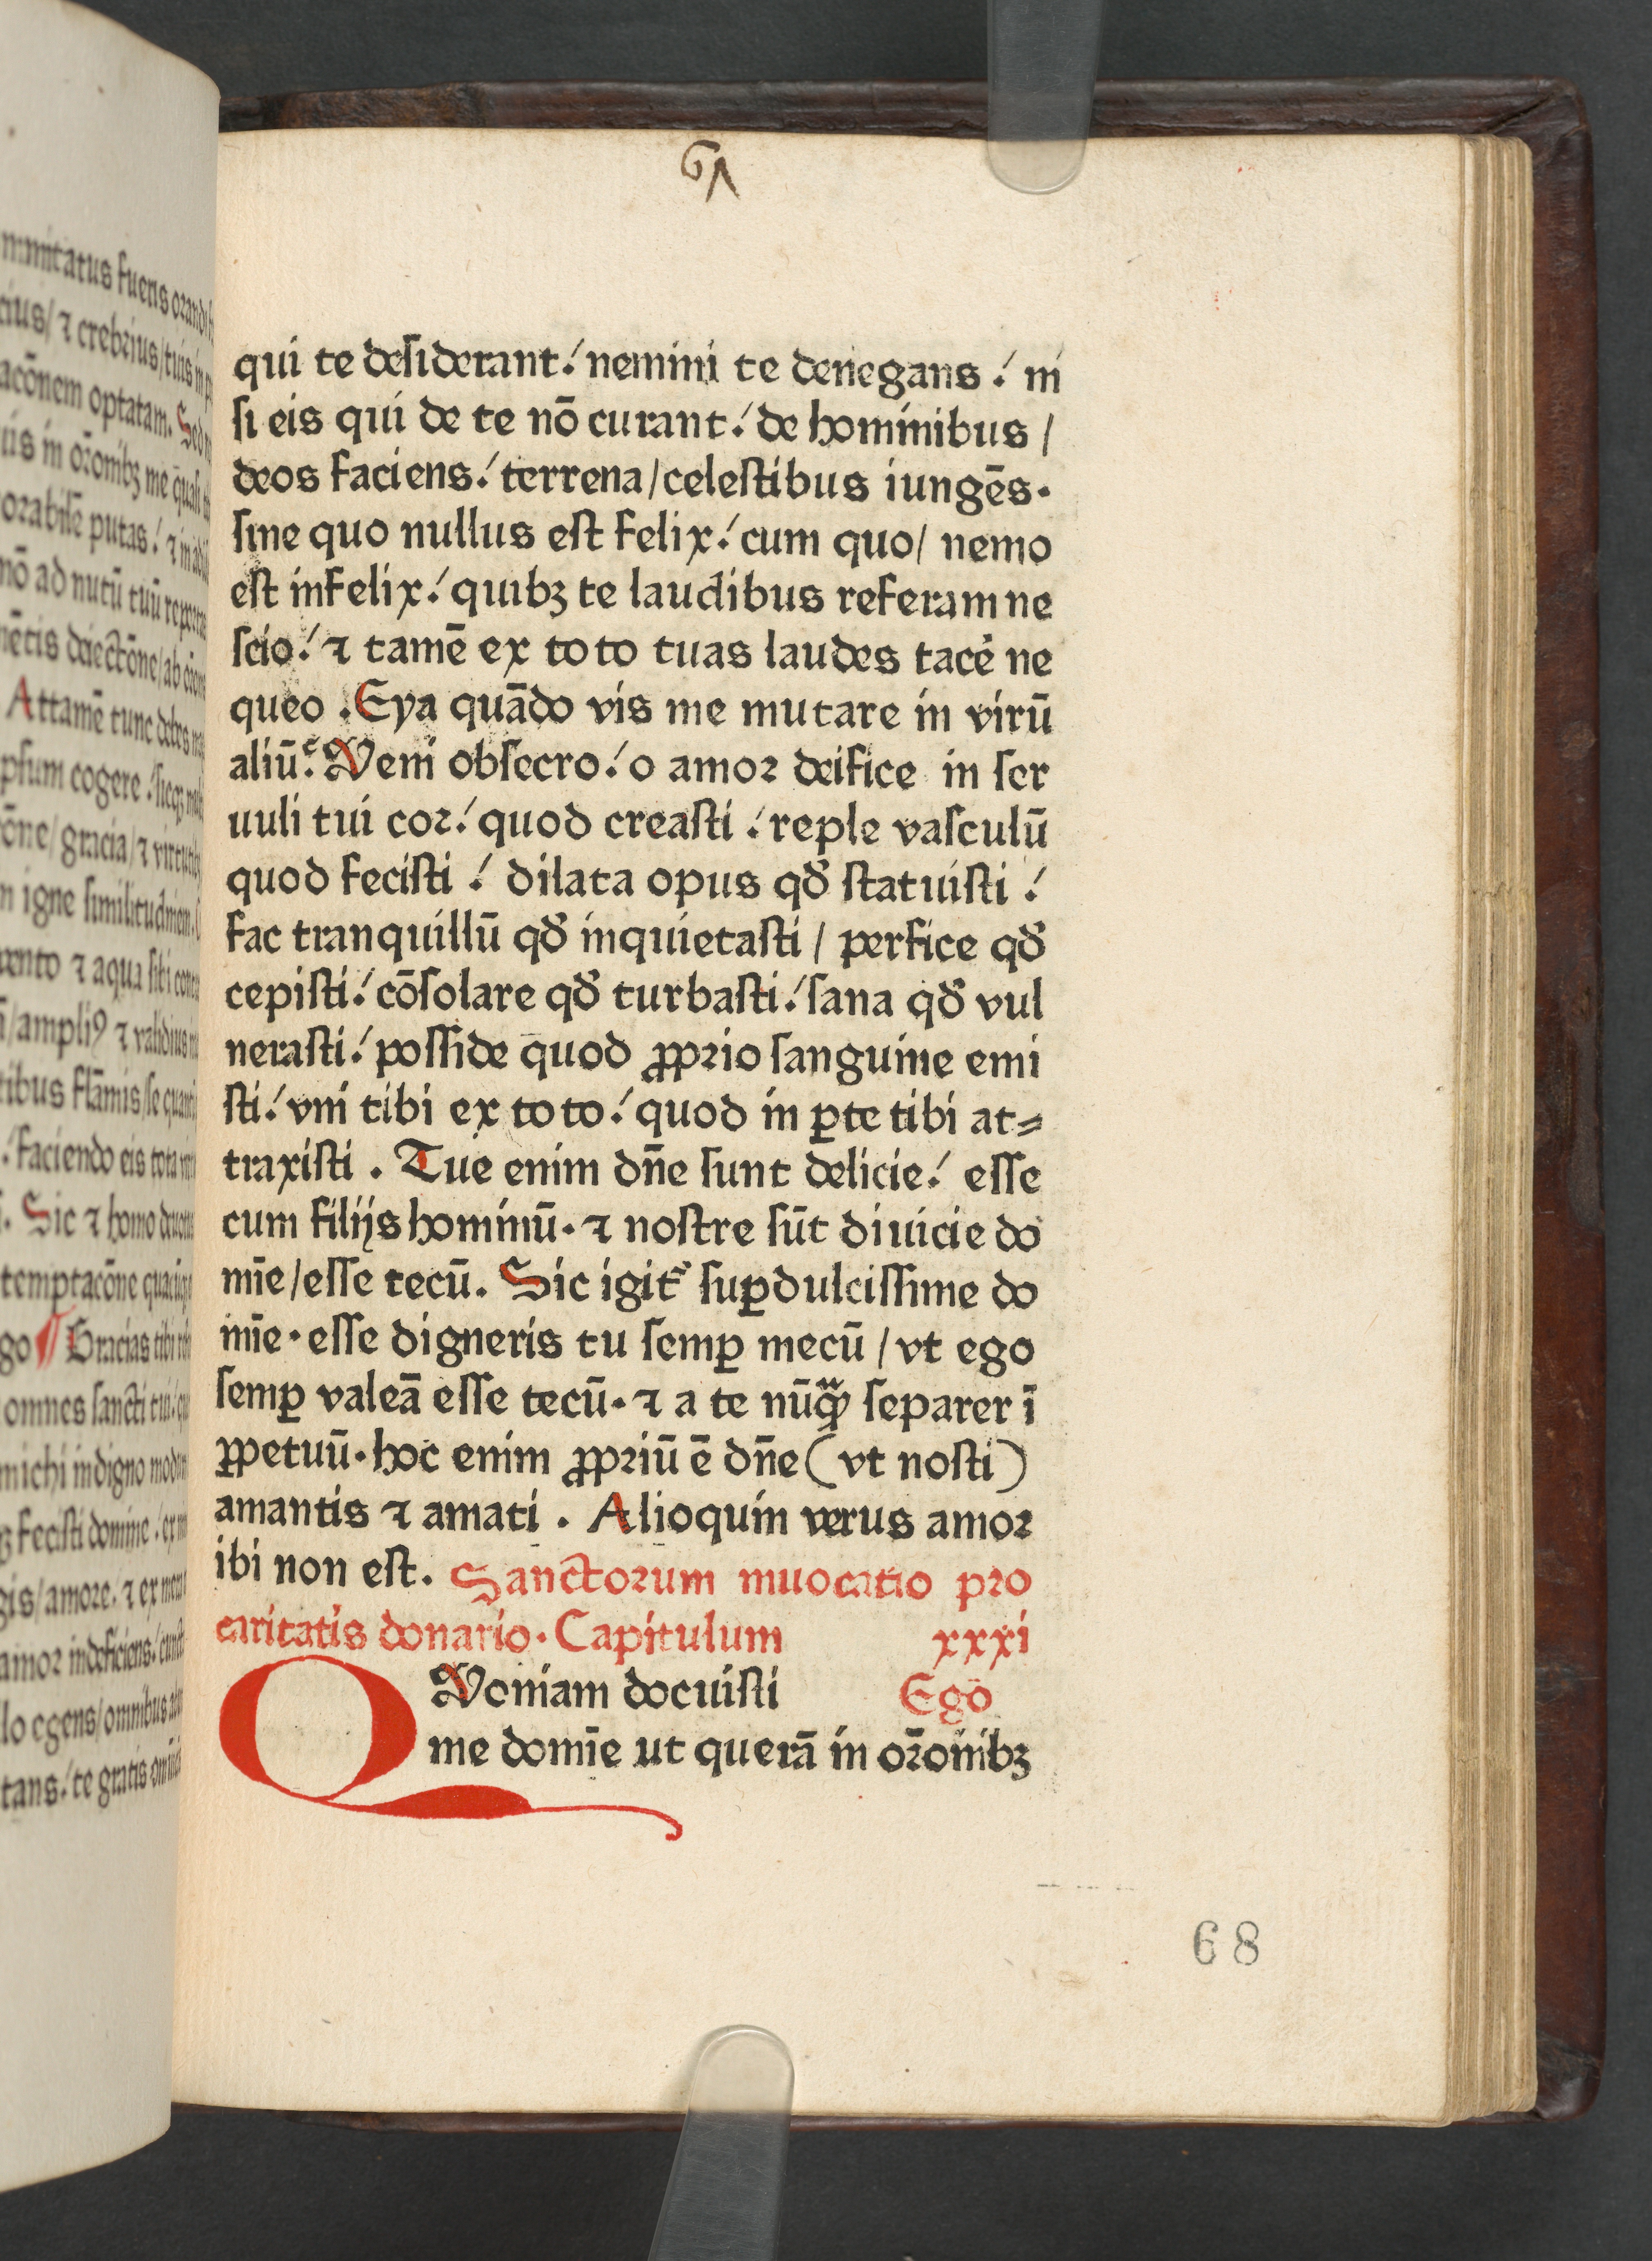 67
qui te desiderant! nemini te denegans! ni
si eis qui de te nō curant! de hominibus /
deos faciens! terrena/celestibus iungēs.
sine quo nullus est felix! cum quo/ nemo
est infelix! quibꝫ te laudibus referam ne
scio! ⁊ tamē ex toto tuas laudes tacē ne
queo. Eya quādo vis me mutare in virū
aliū? Veni obsecro! o amor deifice in ser
uuli tui cor! quod creasti! reple vasculū
quod fecisti! dilata opus qd̕ statuisti!
fac tranquillū qd̕ inquietasti / perfice qd̕
cepisti! cōsolare qd̕ turbasti! sana qd̕ vul
nerasti! posside quod ꝓprio sanguine emi
sti! vni tibi ex toto! quod in ꝑte tibi at⸗
traxisti. Tue enim dn̄e sunt delicie! esse
cum filijs hominū. ⁊ nostre sūt diuicie do
mīe/esse tecū. Sic igit᷑ suꝑdulcissime do
mīe. esse digneris tu semꝑ mecū / vt ego
semꝑ valeā esse tecū. ⁊ a te nūqᷓ separer ī
ꝑpetuū. hoc enim ꝓpriū ē dn̄e (vt nosti)
amantis ⁊ amati. Alioquin verus amor
ibi non est. Sanctorum inuocatio pro
caritatis donario. Capitulum xxxi
QVoniam docuisti Ego
me domīe ut querā in or̄onibꝫ
68